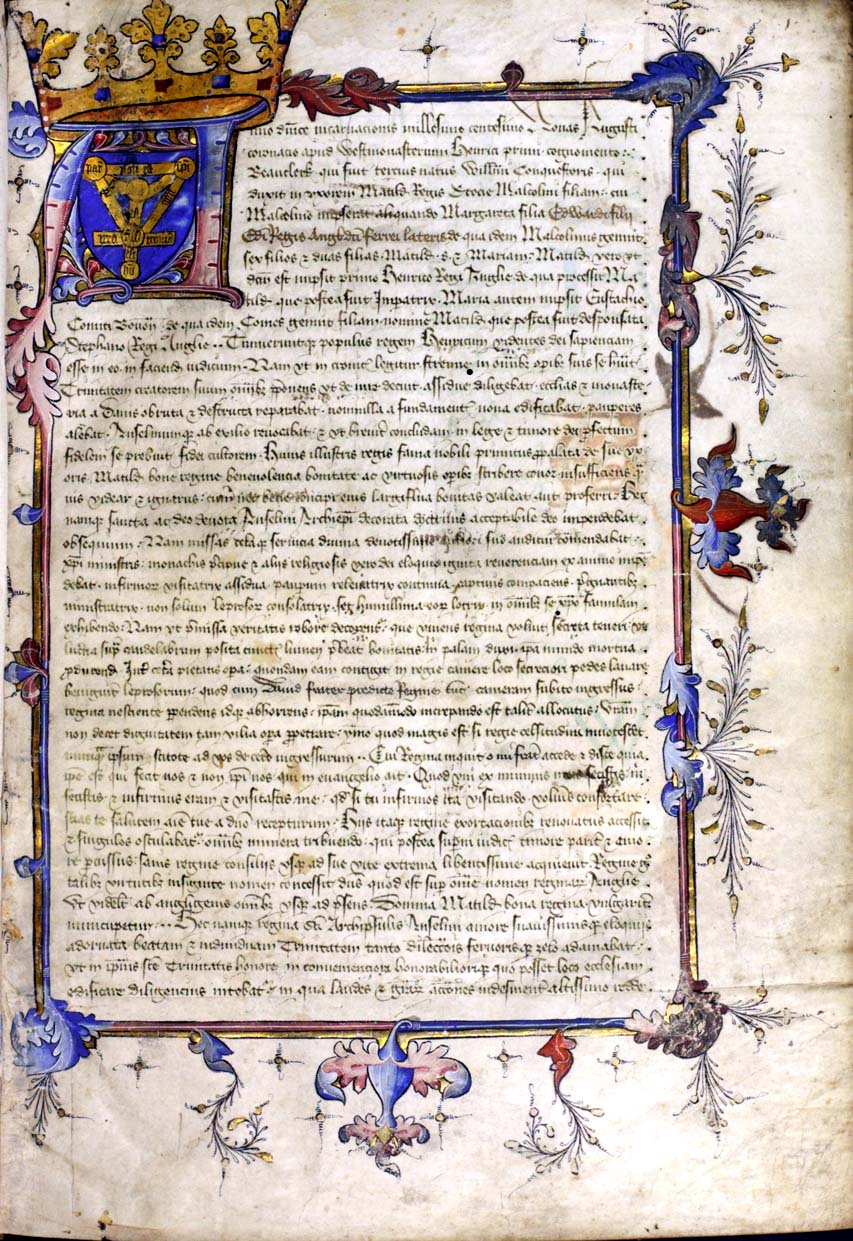 pat non est spiritus
nno dnice incarnacionis millesimo centesimo Nonas Augusti
coronacio apud Westmonasterium Henrici primi cognomento
Beauclerk qui fuit tercius natus Willmi Conquestoris qui
duxit in vxorem Matild Regis Scocie Malcolini filiam cui
Malcolmo nupserat aliquando Margareta filia Edwardi filii
Edi Regis Angl dci Ferrei lateris de qua idem Malcolmus genuit
sex filios & duas filias Matild s. & Mariam Matild vero vt
dcm est nupsit primo Henrico Regi Anglie de qua processit Ma
tild que postea fuit Imperatrix Maria autem nupsit Eustachio
Comiti Bonon de qua idem Comes genuit filiam nomine Matild que postea fuit desponsata
Stephano Regi Anglie Timuerunt populus regem Henricum videntes dei sapienciam
esse in eo in faciend iudicium Nam vt in cronic legitur strenue in omib opib suis se huit
Trinitatem creatorem suum omib pponens vt de iure decuit assidue diligebat ecclias & monaste
ria a Danis obruta & destructa reparabat nonnulla a fundament noua edificabat pauperes
alebat Anselmum ab exilio reuocabat & vt breuit concludam in lege & timore dei pfectum
fidelem se probuit fidei cultorem Huius illustris regis fama nobili primitus ppalata de sue vx
oris Matild bone regine beniuolencia bonitate ac virtuosis opib scribere conor insufficiens
uis videar & ignarus largiflua bonitas valeat aut proferri Hec
namq sancta ac deo deuota Anselmi Archiepi decorata doctrinis acceptabile deo impendebat
obsequium Nam missas ceta seruicia diuina deuotissi sub auditur comendabat
xpi ministris monachis pcipue & aliis religiosis vero dei eloquio ignita reuerenciam ex animo impe
debat infirmor visitatrix assidua paupum releuatrix continua captiuis compaciens pgnantib
ministratrix non solum leprosor consolatrix set humillima eor lotrix in omib se xpo famulam
exhibendo Nam vt pmissa veritatis robore decorent que viuens regina voluit secreta teneri vt
lucerna sup candelabrum posita cunctis lumen pbeat bonitatis in palam duxi apa mundo mortua
pducend Int ceta pietatis opa quondam eam contigit in regie camere loco secreciori pedes lauare
benignit leprosorum quod cum Dauid frater predicte Regine cameram subito ingressus
regina nesciente ppendens id abhorrens ipam quodamodo increpando est talit allocutus
non decet dignitatem tam vilia opa ppetrare ymo quod magis est si regie celsitudini innotescet
nunq ipsum scitote ad vos de ceto ingressurum Cui Regina inquit o mi frater accede & disce quia
ipe est qui fecit nos & non ipi nos qui in euangelio ait Quod vni ex minimis meis fecistis mi
fecistis & infirmus eram & visitastis me qd si tu infirmos ita visitando volueris confortare
scias te salutem aie tue a dno recepturum Hiis itaq regine exortacionib renouatus accessit
& singulos osculabat omib munera tribuendo qui postea supni iudicis timore parit & amo
re pcussus sanis regine consiliis vsq ad sue vite extrema libentissime acquieuit Regine
talib virtutib insignite nomen concessit dns quod est sup ome nomen reginar Anglie
Vt videlt ab angligenis omib vsq ad psens Domina Matild bona regina vulgarit
nuncupetur Hec namq regina sci Archipsulis Anselmi amore suauissimisq eloquiis
adornata beatam & indiuiduam Trinitatem tanto dileccois feruorisq zelo adamabat
vt in ipius sce Trinitatis honore in conuenienciori honorabiliorq quo posset loco ecclesiam
edificare diligencius nitebat in qua laudes & grar accoes indesinent altissimo redde